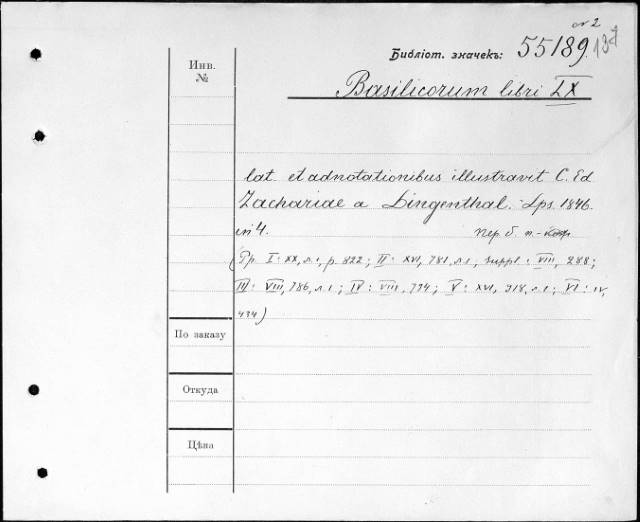 № 2
Библіот. значекъ: 55189
Инв.
№
Basilicorum libri LX
lat. et adnotationibus illustravit C. Ed
Zachariae a Lingenthal. Lps. 1846.
in 4. Пер. б. п.-кож.
(Pp. I: XX, л.1, p. 822; II: XVI, 781, л.1, suppl: VIII, 288;
III: VIII, 786, л.1; IV: VIII, 794; V: XVI, 918, л.1; VI: IV,
434)
По заказу
Откуда
Цѣна